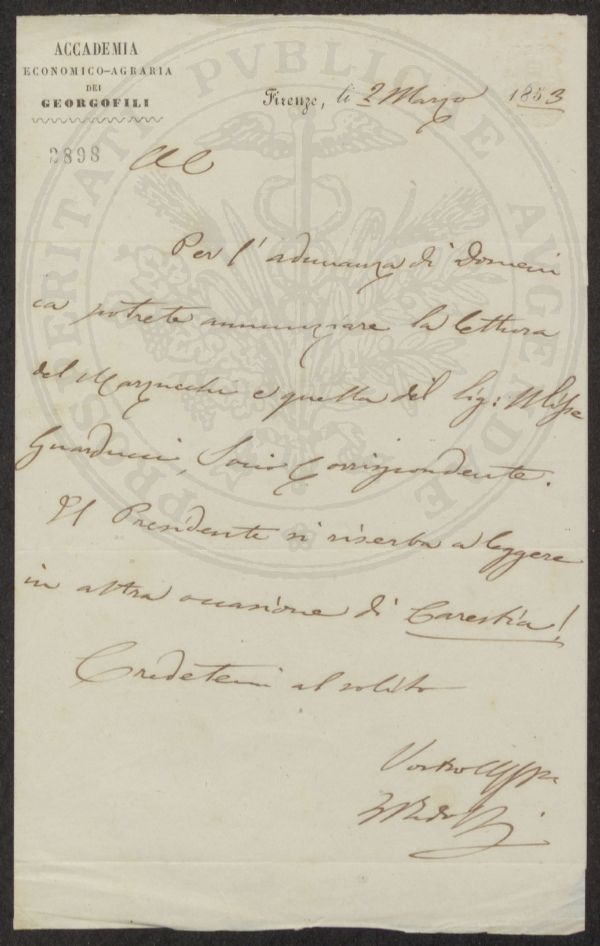 ACCADEMIA
ECONOMICO-AGRARIA
DEI
GEORGOFILI
2898
Firenze, li 2 Marzo 1853
Per l'adunanza di Domeni
ca potrete annunziare la lettura
del Marzucchi e quella del Sig: Ulisse
Guarducci, Socio Corrispondente.
Il Presidente si riserba a leggere
in altra occasione di Carestia!
Credetemi al solito
Vostro
PROSPERITATI PVBLICAE AVGENDAE